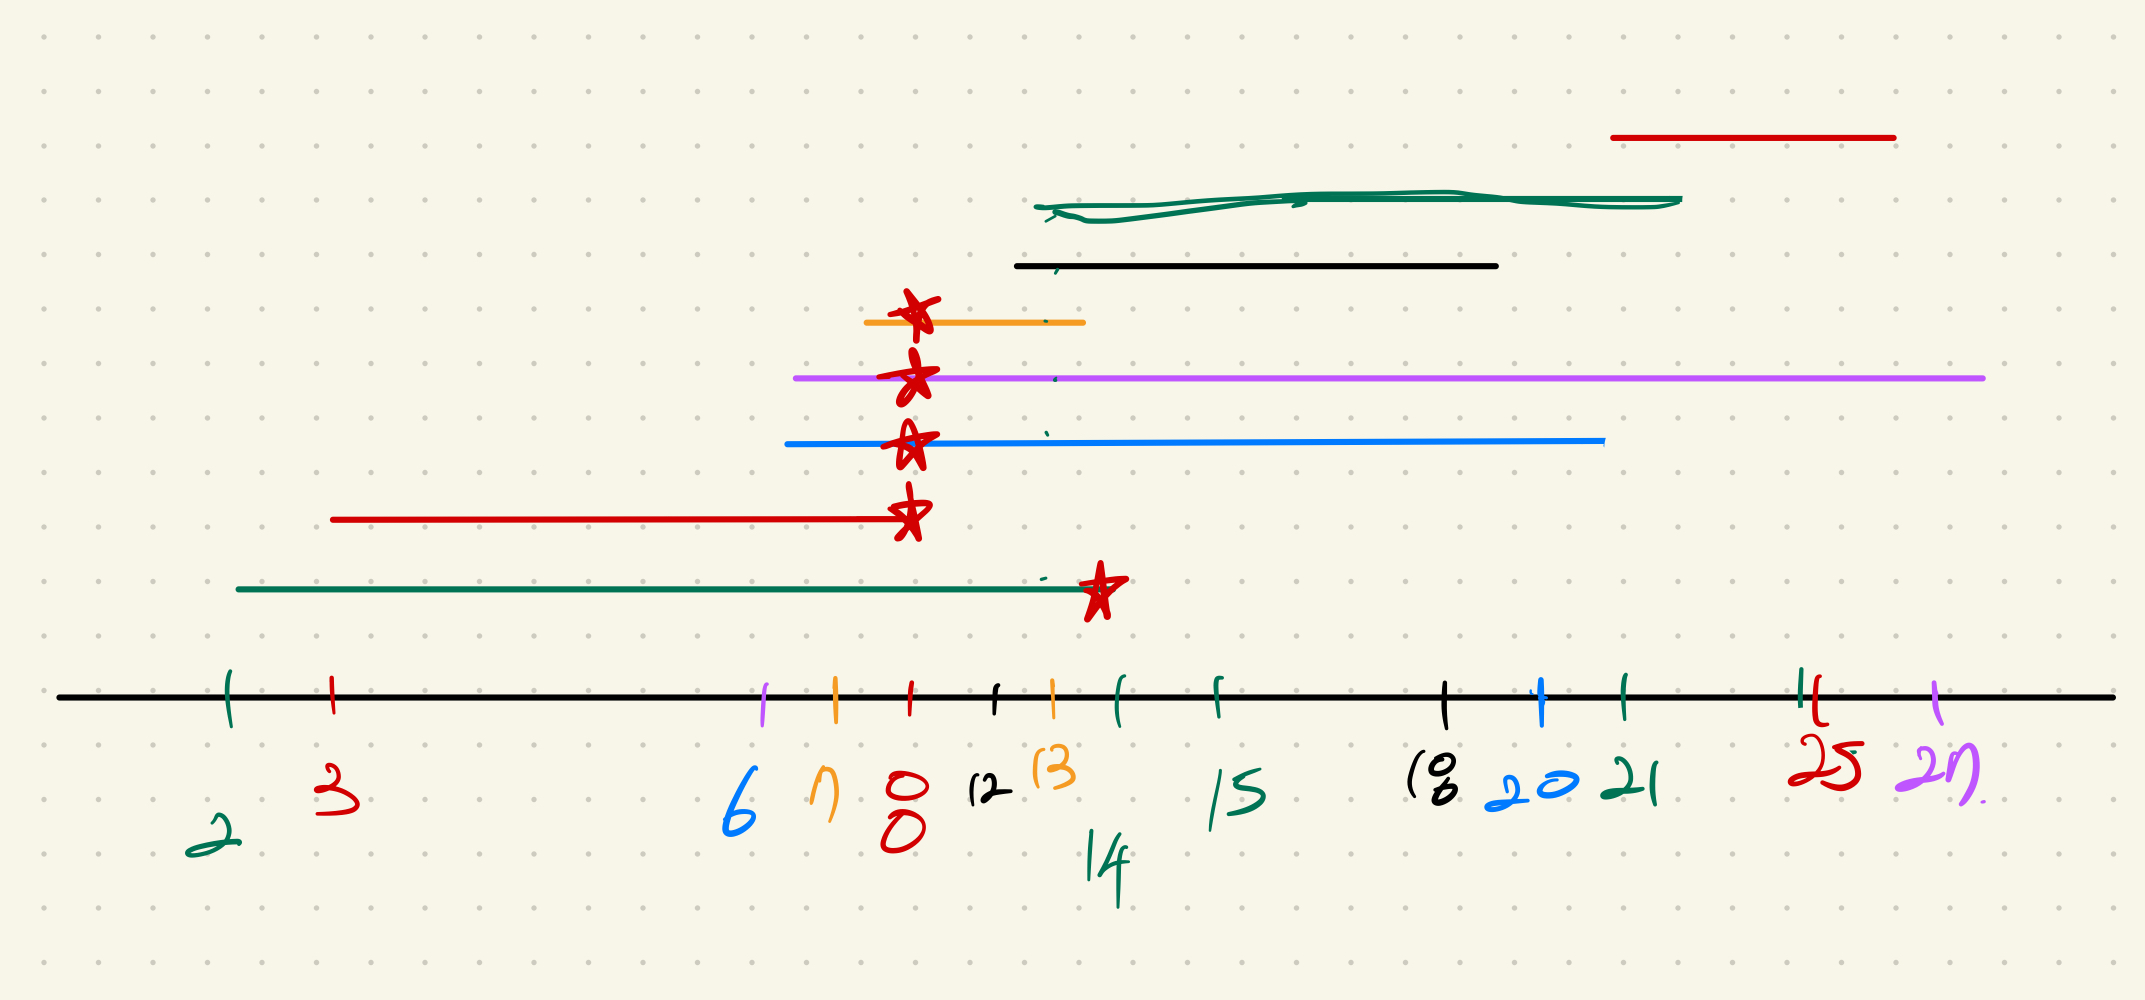 2 3 6 7 8 12 13 14 15 18 20 21 25 27